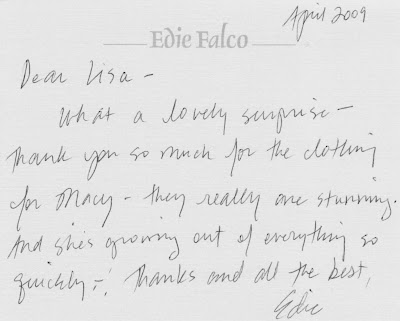 April 2009
Edie Falco
Dear Lisa -
What a lovely surprise -
Thank you so much for the clothing
for Macy - they really are stunning.
And she's growing out of everything so
quickly -! Thanks and all the best,
Edie